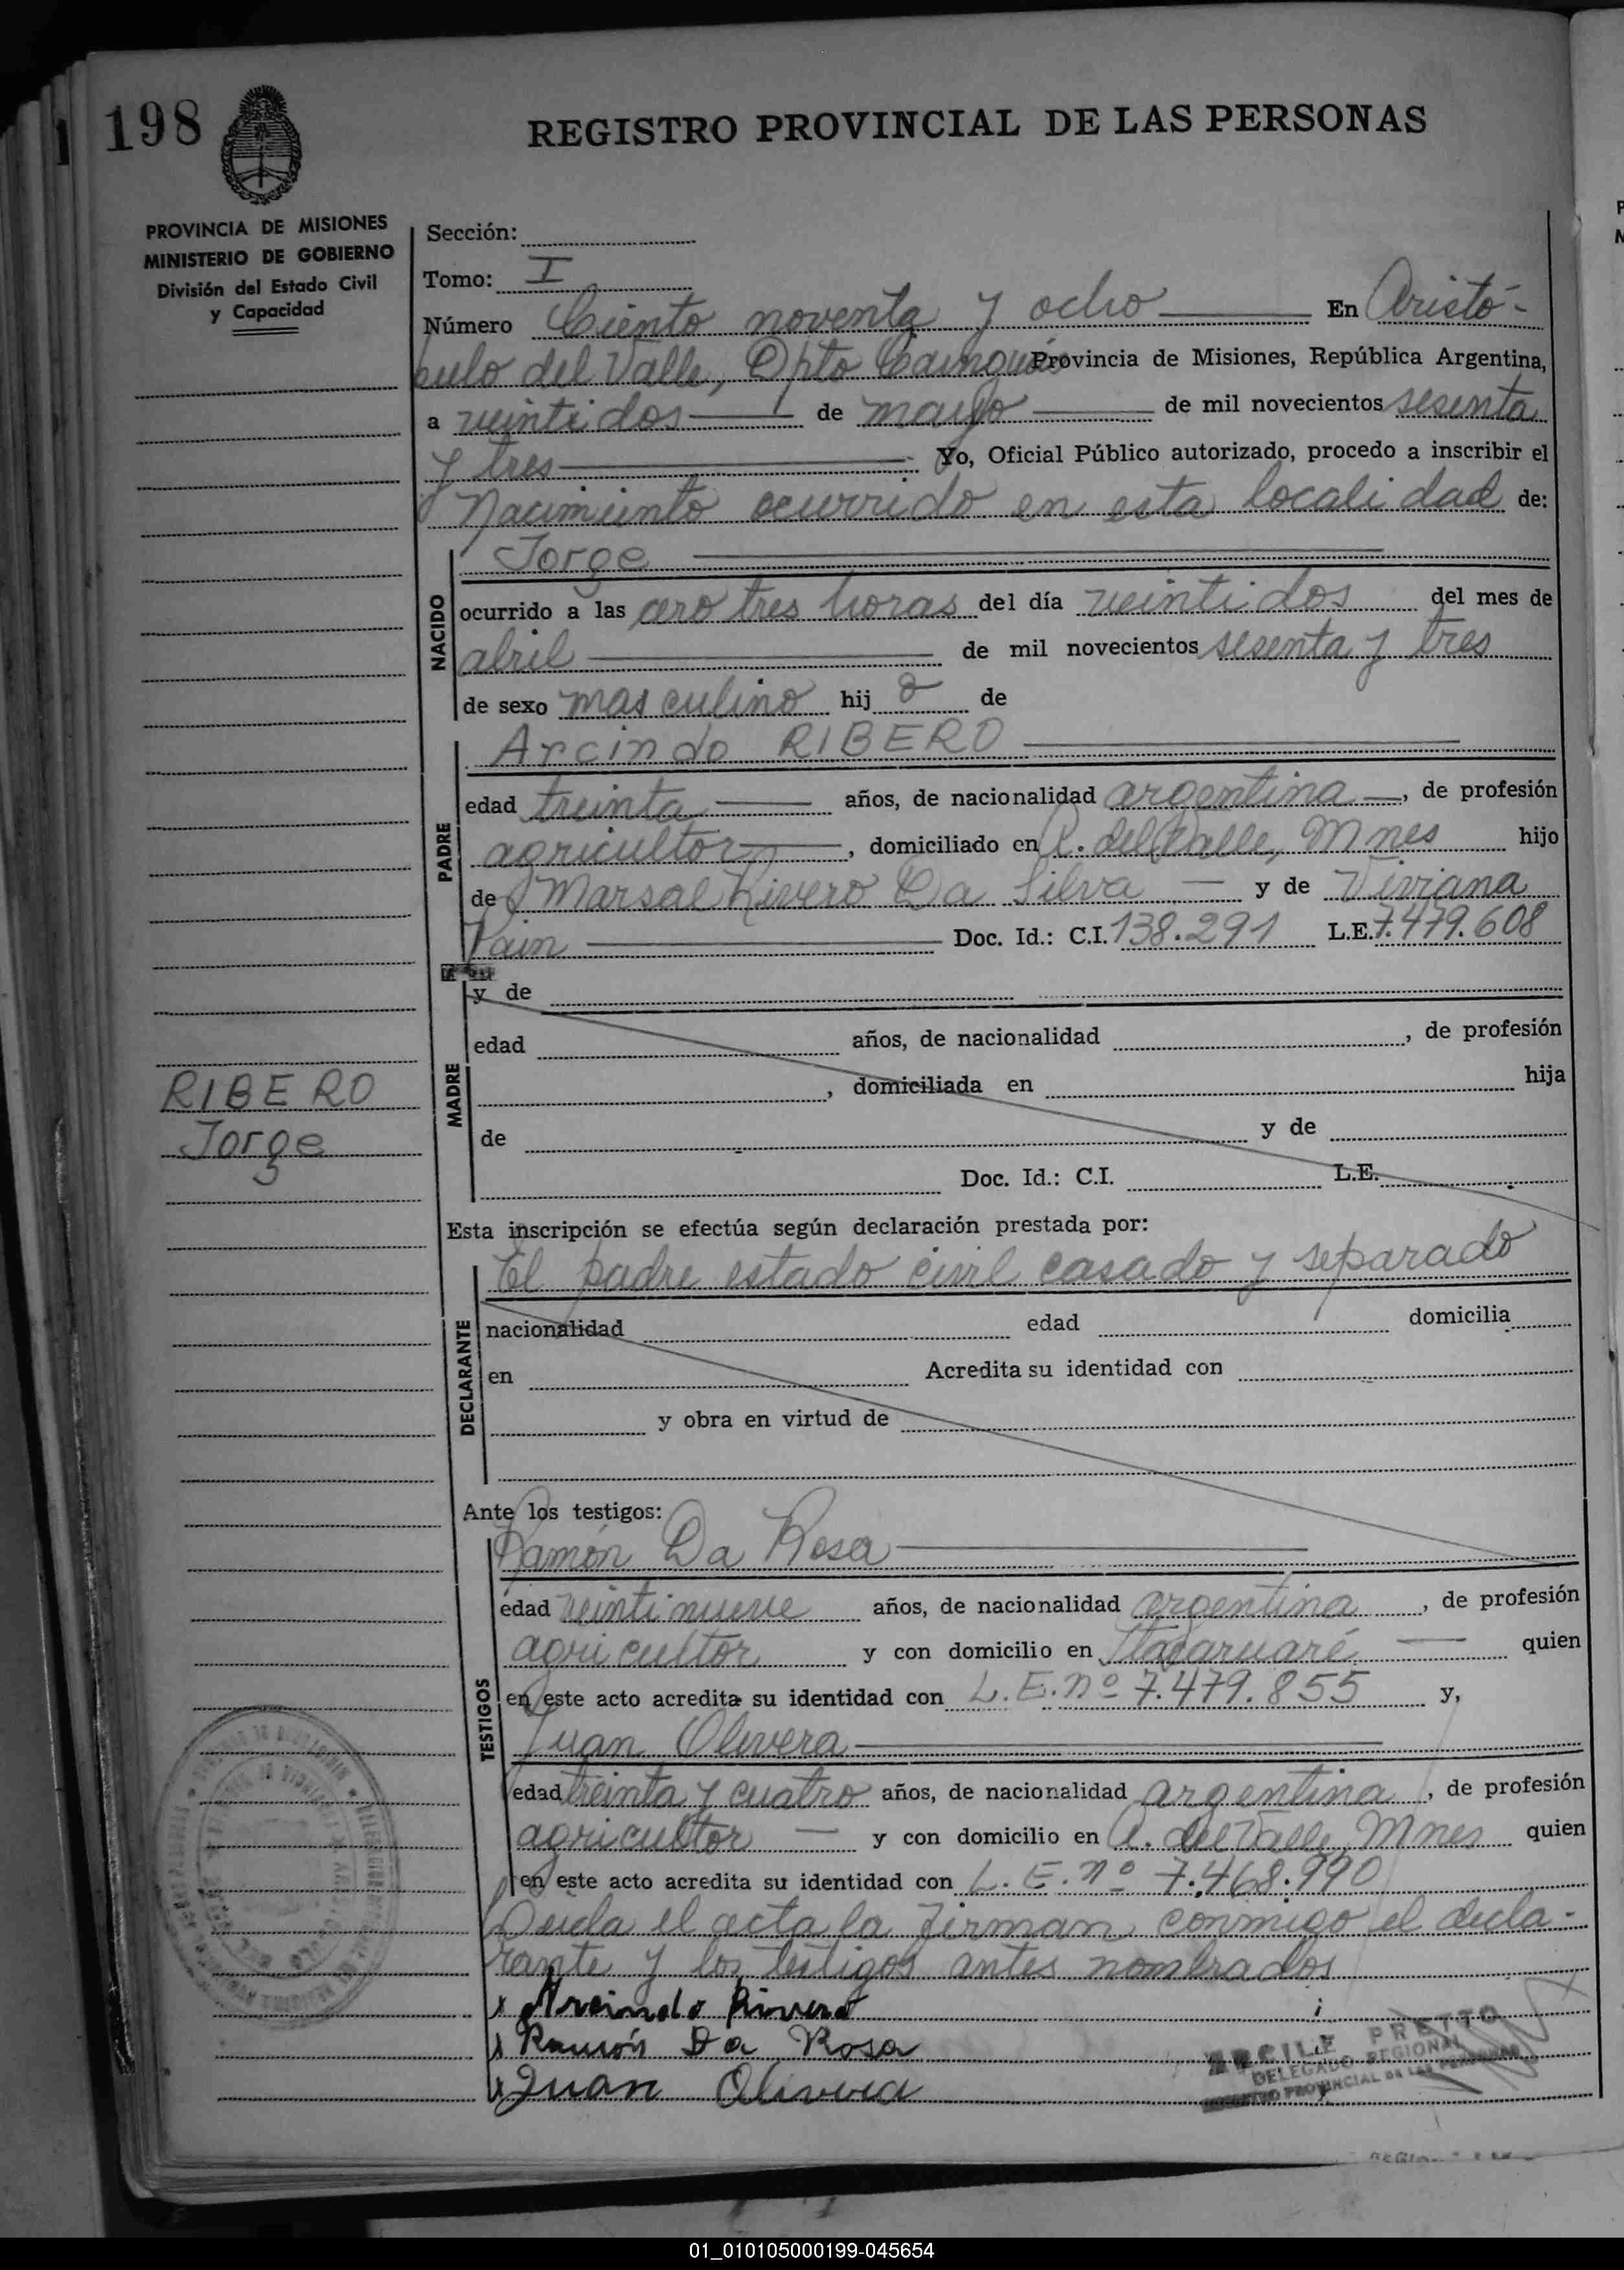 198
REGISTRO PROVINCIAL DE LAS PERSONAS
PROVINCIA DE MISIONES
MINISTERIO DE GOBIERNO
División del Estado Civil
y Capacidad
Sección:
Tomo: I
Número Ciento noventa y ocho En Aristó-
bulo del Valle, Dpto Cainguás Provincia de Misiones, República Argentina,
a veintidos de mayo de mil novecientos sesenta
y tres Yo, Oficial Público autorizado, procedo a inscribir el
Nacimiento ocurrido en esta localidad de:
NACIDO
Jorge
ocurrido a las cero tres horas del día veintidos del mes de
abril de mil novecientos sesenta y tres
de sexo masculino hij o de
PADRE
Arcindo RIBERO
edad treinta años, de nacionalidad argentina, de profesión
agricultor, domiciliado en A. del Valle, Mnes hijo
de Marsal Rivero Da Silva y de Viviana
Pain Doc. Id.: C.I. 138.291 L.E. 7.479.608
MADRE
y de
edad años, de nacionalidad , de profesión
, domiciliada en hija
de y de
Doc. Id.: C.I. L.E.
RIBERO
Jorge
Esta inscripción se efectúa según declaración prestada por:
DECLARANTE
El padre estado civil casado y separado
nacionalidad edad domicilia
en Acredita su identidad con
y obra en virtud de
Ante los testigos:
TESTIGOS
Ramón Da Rosa
edad veintinueve años, de nacionalidad argentina, de profesión
agricultor y con domicilio en quien
en este acto acredita su identidad con L.E. nº 7.479.855 y,
Juan Olivera
edad treinta y cuatro años, de nacionalidad argentina, de profesión
agricultor y con domicilio en A. del Valle, Mnes quien
en este acto acredita su identidad con L.E. nº 7.468.990
Leida el acta la firman conmigo el decla-
rante y los testigos antes nombrados
x Arcindo Rivero
x Ramón Da Rosa
x Juan Olivera
PRETTO
DELEGADO REGIONAL
REGISTRO PROVINCIAL DE LAS PERSONAS
01_010105000199-045654